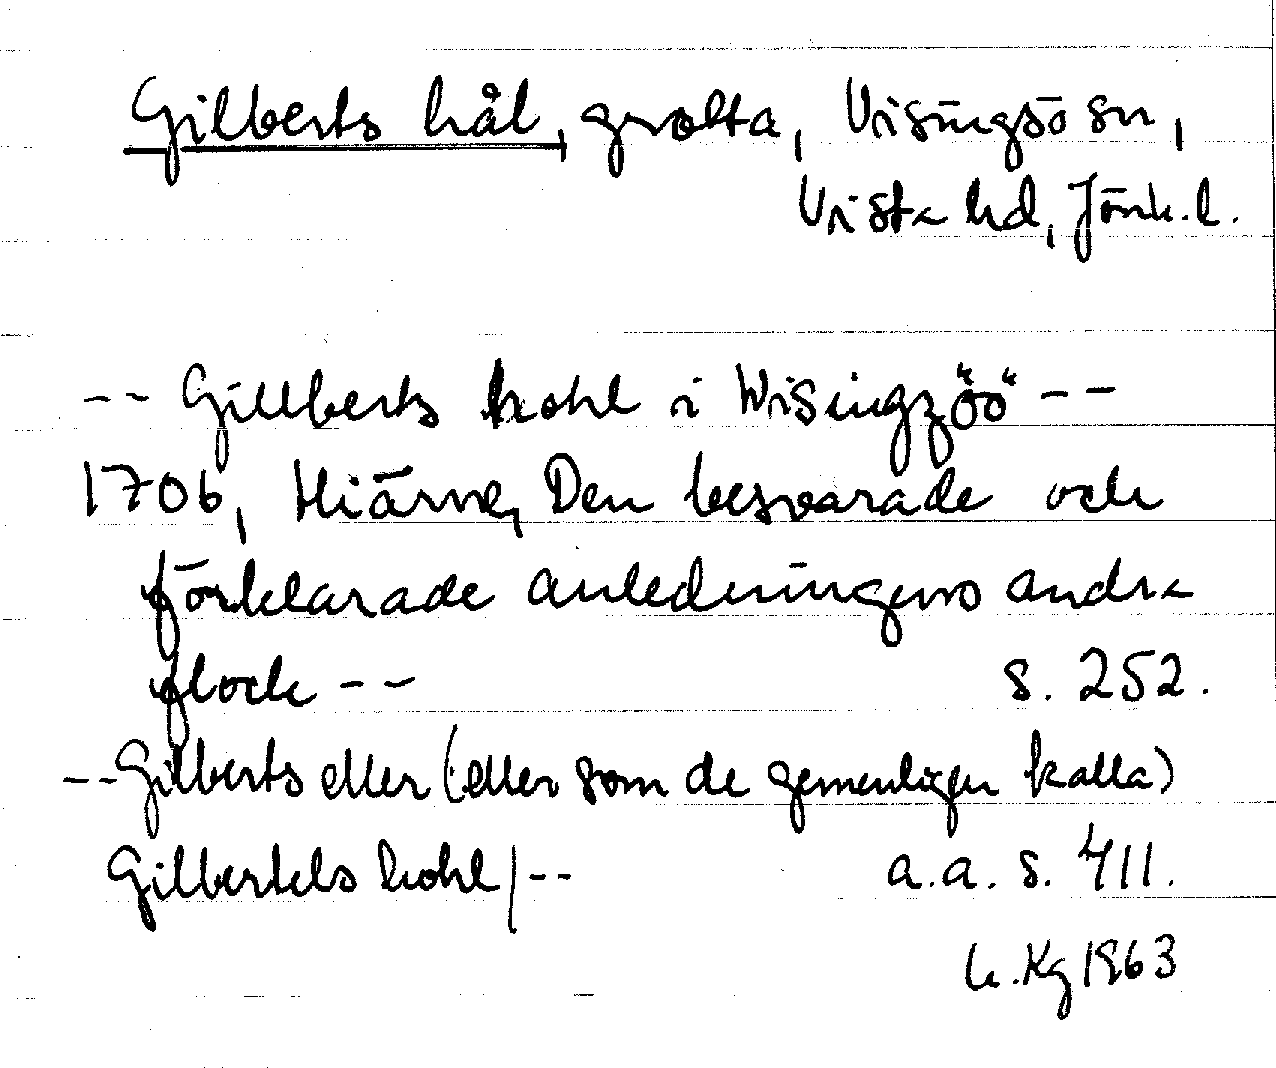 Gilberts hål, grotta, Visingsö sn,
Vista hd, Jönk. l.
-- Gillberts hohl i Wisingzöö --
1706, Hiärne, Den besvarade och
förklarade anledningens andra
flock -- s. 252.
-- Gilberts eller (eller som de gemenligen kalla)
Gilbertels hohl/-- a.a. s. 411.
Kg 1963